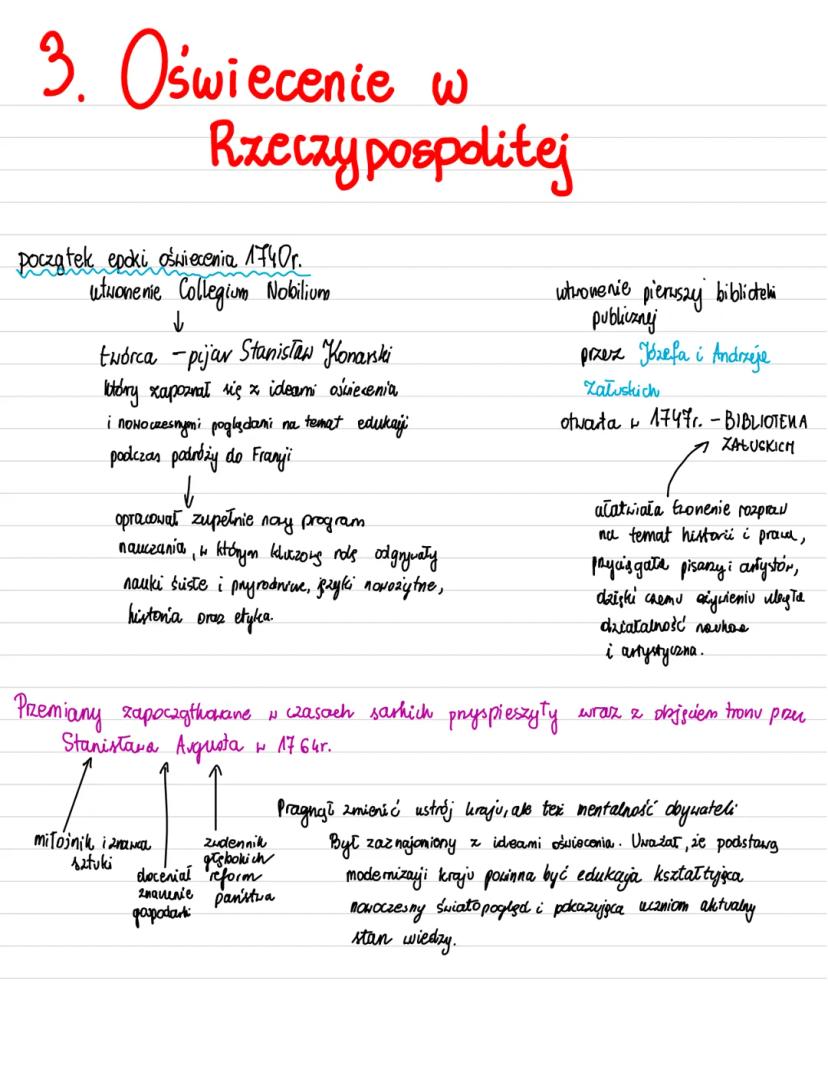 3. Oświecenie w
Rzeczypospolitej
początek epoki oświecenia 1740r.
utworzenie Collegium Nobilium
↓
twórca - pijar Stanisław Konarski
który zapoznał się z ideami oświecenia
i nowoczesnymi poglądami na temat edukacji
podczas podróży do Francji
↓
opracował zupełnie nowy program
nauczania, w którym kluczową rolę odgrywały
nauki ścisłe i przyrodnicze, języki nowożytne,
historia oraz etyka.
utworzenie pierwszej biblioteki
publicznej
przez Józefa i Andrzeja
Załuskich
otwarta w 1747r. - BIBLIOTEKA
ZAŁUSKICH
ułatwiała tworzenie rozpraw
na temat historii i prawa,
przyciągała pisarzy i artystów,
dzięki czemu ożywieniu uległa
działalność naukowa
i artystyczna.
Przemiany zapoczątkowane w czasach saskich przyspieszyły wraz z objęciem tronu przez
Stanisława Augusta w 1764r.
miłośnik i znawca
sztuki
doceniał
znaczenie
gospodarki
zwolennik
głębokich
reform
państwa
Pragnął zmienić ustrój kraju, ale też mentalność obywateli
Był zaznajomiony z ideami oświecenia. Uważał, że podstawą
modernizacji kraju powinna być edukacja kształtująca
nowoczesny światopogląd i pokazująca uczniom aktualny
stan wiedzy.